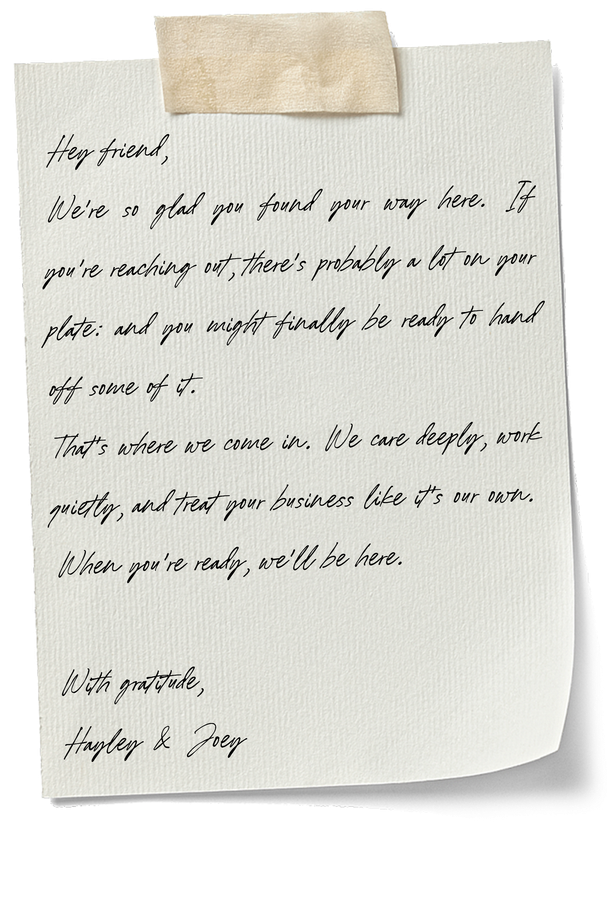 Hey friend,
We're so glad you found your way here. If
you're reaching out, there's probably a lot on your
plate: and you might finally be ready to hand
off some of it.
That's where we come in. We care deeply, work
quietly, and treat your business like it's our own.
When you're ready, we'll be here.
With gratitude,
Hayley & Joey